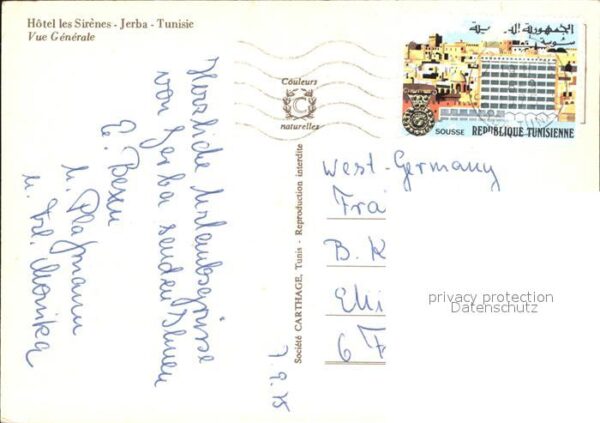 Hôtel les Sirènes - Jerba - Tunisie
Vue Générale
Couleurs
C
naturelles
Société CARTHAGE, Tunis - Reproduction interdite
الجمهورية التونسية
سوسة
SOUSSE REPUBLIQUE TUNISIENNE
Herzliche Urlaubsgrüsse
von Jerba senden Ihnen
E.
u.
u. Frl. Monika
7.9.75
West-Germany
Fra
B. K
6 F
privacy protection
Datenschutz